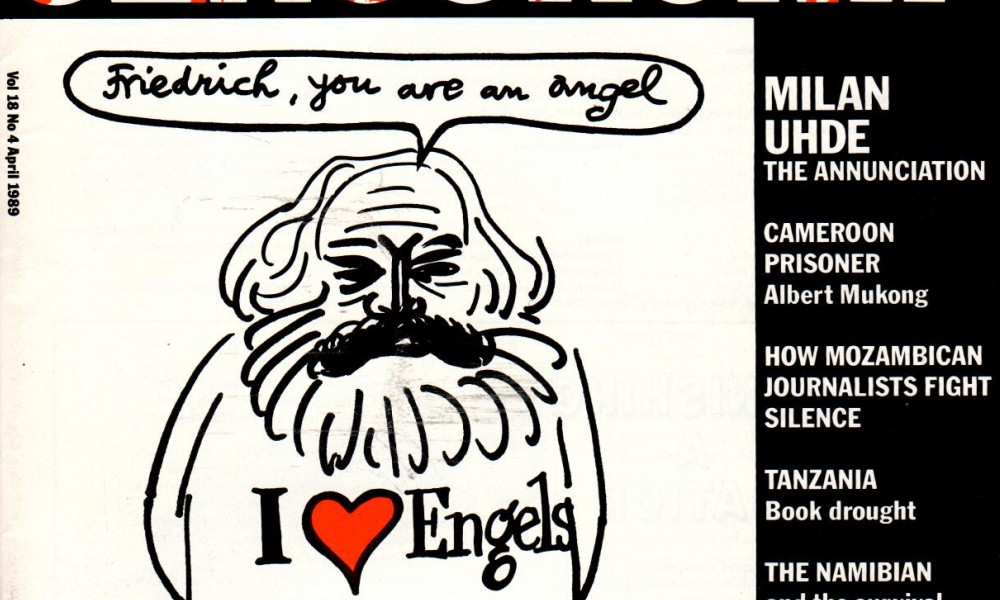 Vol 18 No 4 April 1989
Friedrich, you are an angel
I ♥ Engels
MILAN
UHDE
THE ANNUNCIATION
CAMEROON
PRISONER
Albert Mukong
HOW MOZAMBICAN
JOURNALISTS FIGHT
SILENCE
TANZANIA
Book drought
THE NAMIBIAN
and the survival